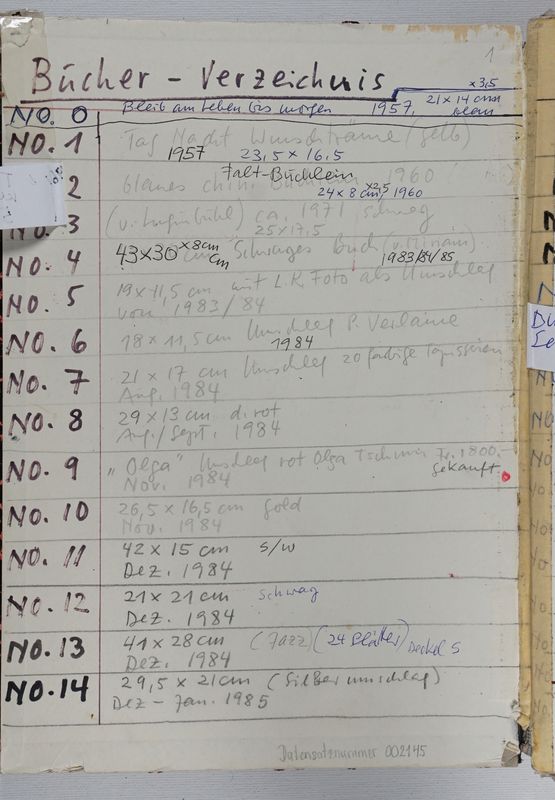 1
Bücher - Verzeichnis
x 3,5
NO. 0 Bleib am Leben bis morgen 1957, 21 x 14 cm
blau
NO. 1 Tag Nacht Wunschträume (gelb)
1957 23,5 x 16,5
2 blaues chin. Falt-Büchlein 1960
24 x 8 cm x2,5, 1960
3 ca. 1971 schwarz
25 x 17,5
NO. 4 43x30 x 8cm cm Schwarzes Buch
1983/84/85
NO. 5 19 x 11,5 cm mit L.K. Foto als Umschlag
vom 1983/84
NO. 6 18 x 11,5 cm Umschlag P. Verlaine
1984
NO. 7 21 x 17 cm Umschlag 20 farbige
Aug. 1984
NO. 8 29 x 13 cm d. rot
Aug./Sept. 1984
NO. 9 „Olga" Umschlag rot Olga Fr. 1800.-
Nov. 1984 gekauft.
NO. 10 26,5 x 16,5 cm Gold
Nov. 1984
NO. 11 42 x 15 cm s/w
Dez. 1984
NO. 12 21 x 21 cm schwarz
Dez. 1984
NO. 13 41 x 28 cm (Jazz) (24 Blätter) Deckel S
Dez. 1984
NO. 14 29,5 x 21 cm (Silberumschlag)
Dez - Jan. 1985
Datensatznummer 002145